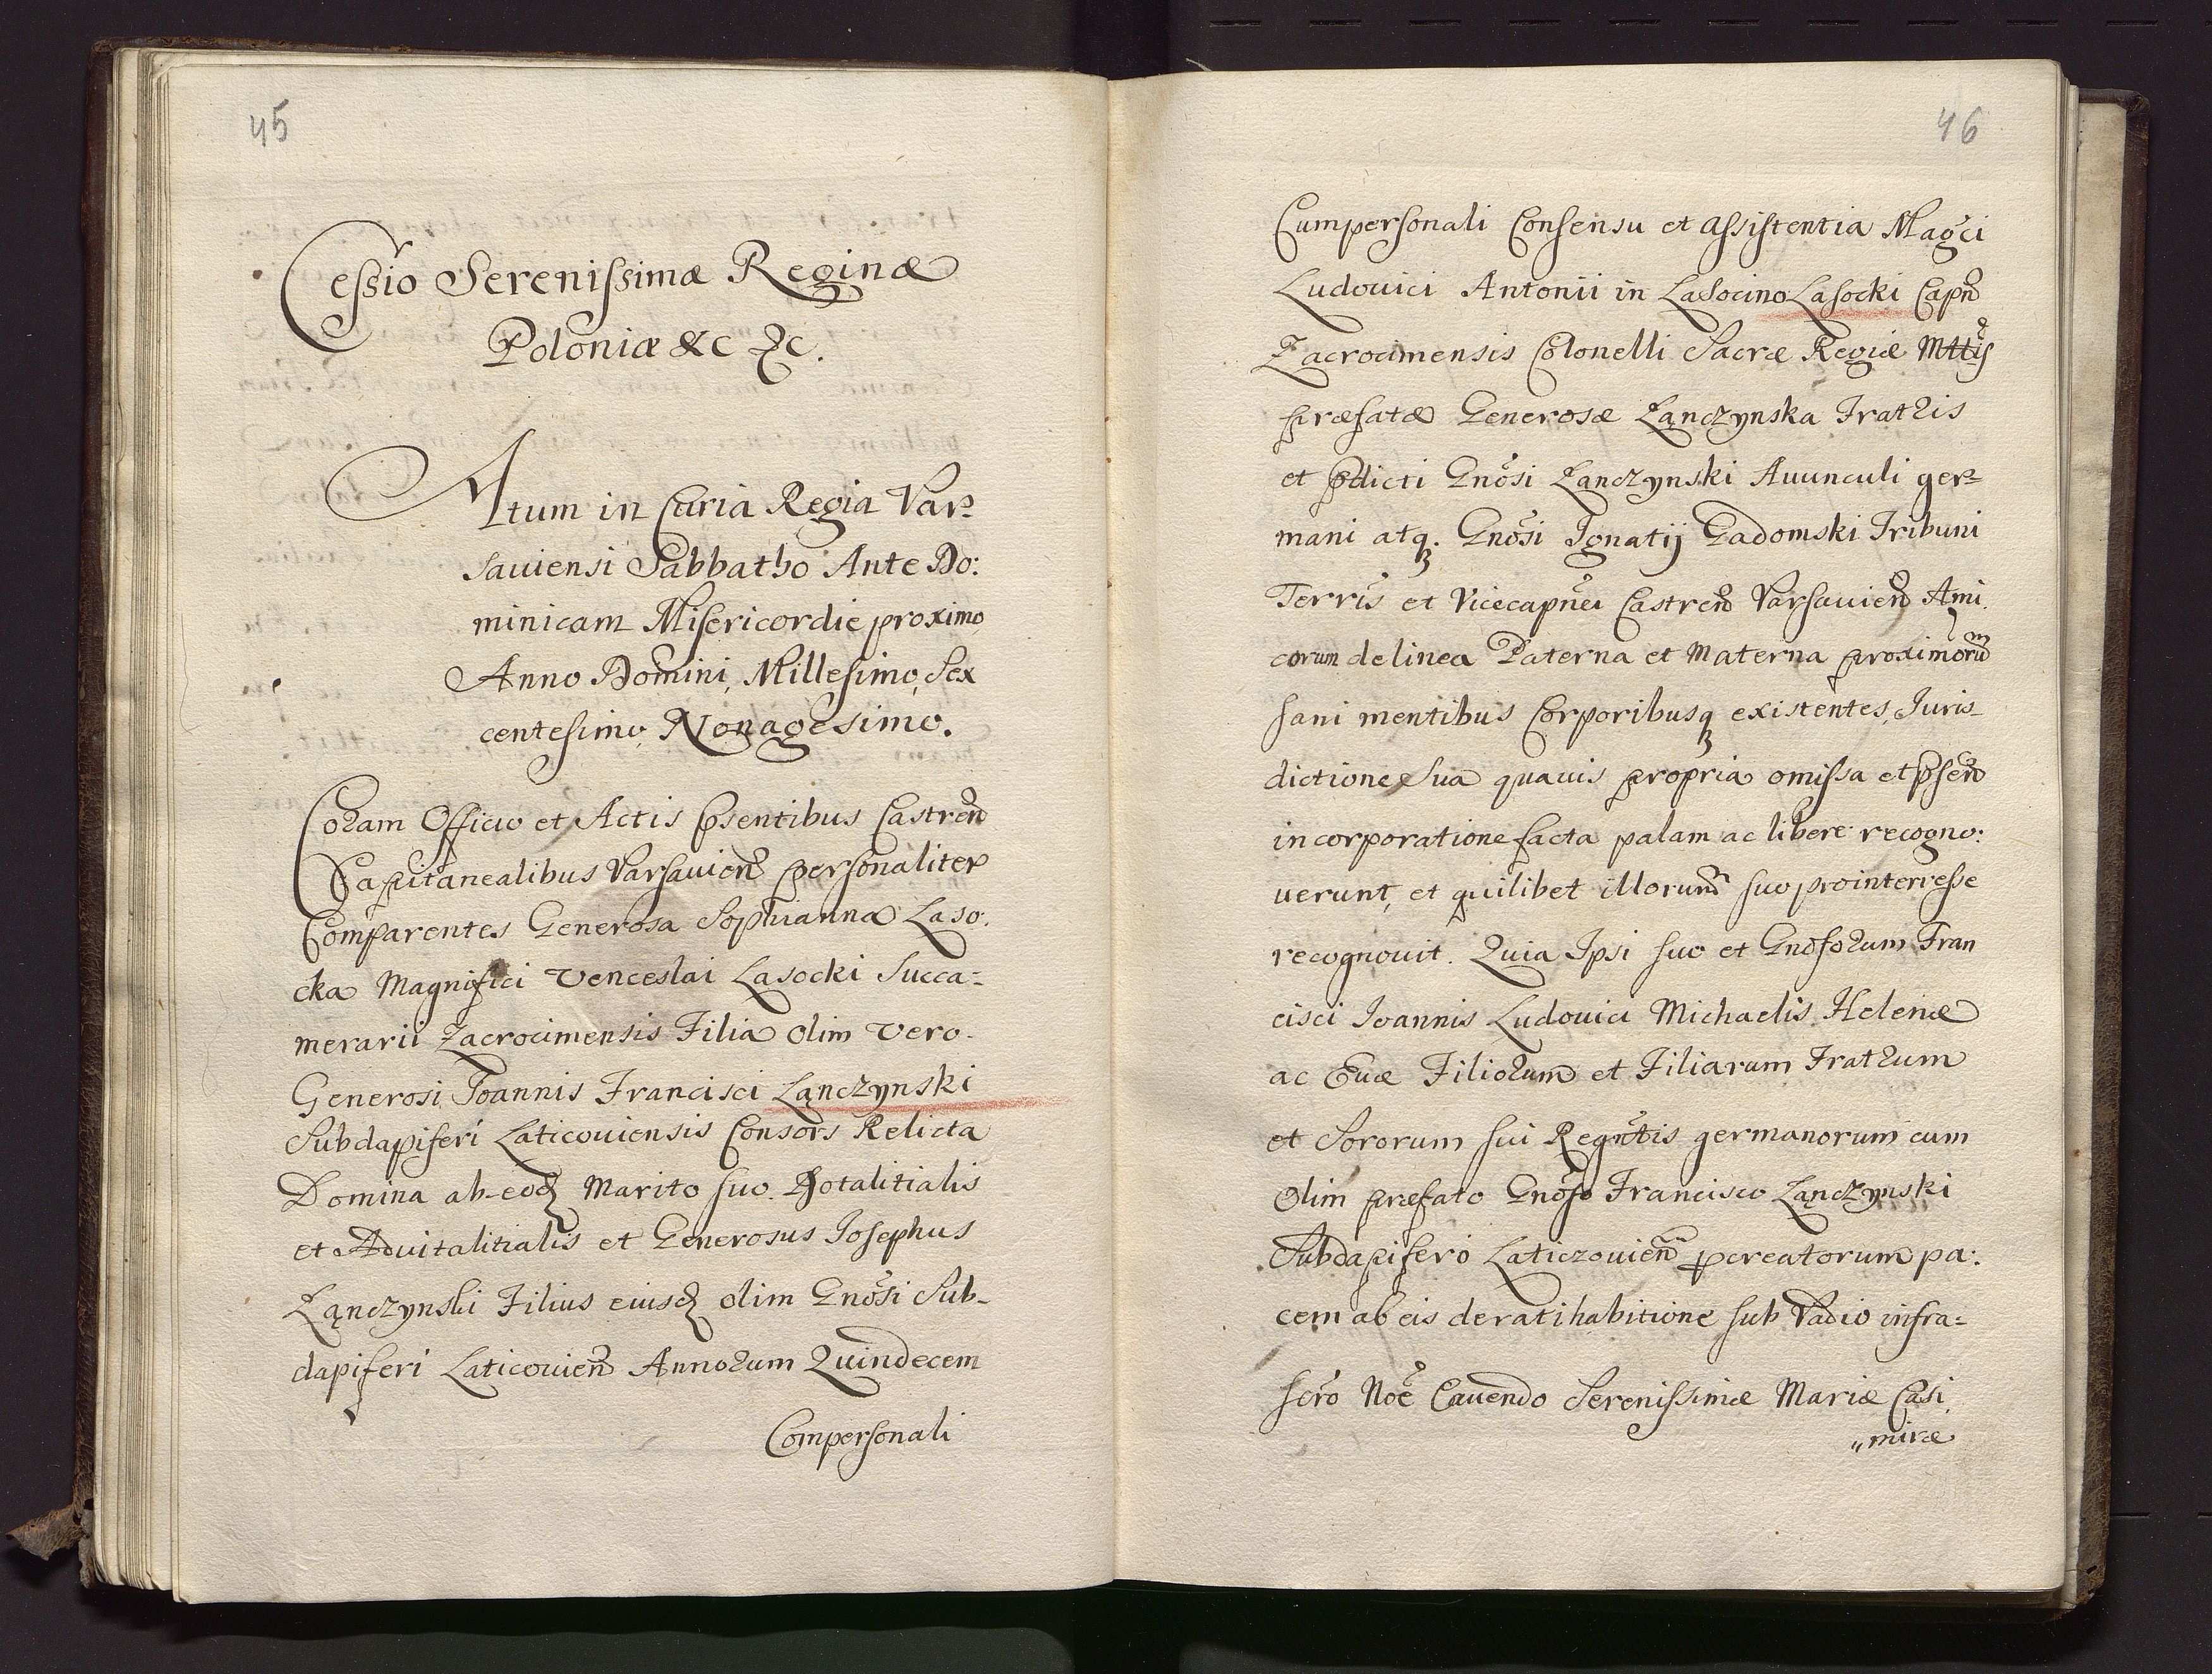 45
Cessio Serenissimæ Reginæ
Poloniæ &c &c.
Actum in Curia Regia Var-
sauiensi Sabbatho Ante Do:
minicam Misericordie proximo
Anno Domini, Millesimo, Sex
centesimo Nonagesimo.
Coram Officio et Actis Psentibus Castren
Capitanealibus Varsauien personaliter
Comparentes Generosa Sophianna Laso:
cka Magnifici Venceslai Lasocki Succa-
merarii Zacrocimensis Filia olim vero
Generosi Joannis Francisci Łączynski
Subdapiferi Laticouiensis Consors Relicta
Domina ab eodem Marito suo Dotalitialis
et Aduitalitialis et Generosus Josephus
Łączynski Filius eiusd olim Gnosi Sub-
dapiferi Laticouien Annorum Quindecem
Compersonali
46
Cumpersonali Consensu et assistentia Magci
Ludouici Antonii in Lasocino Lasocki Capn
Zacrocimensis Colonelli Sacræ Regiæ Mttis
præfatæ Generosæ Łanczynska Fratris
et pdicti Gnosi Łanczynski Auunculi ger-
mani atq. Gnosi Ignatij Gadomski Tribuni
Terris et Vicecapnei Castren Varsauien Ami
corum de linea Paterna et Materna proximorum
sani mentibus Corporibusq existentes, Juris-
dictione sua quauis propria omissa et psen
incorporatione facta palam ac libere recogno:
uerunt, et quilibet illorum suo prointerresse
recognouit. Quia Ipsi suo et Gnosorum Fran
cisci Joannis Ludouici Michaelis Helenæ
ac Euæ Filiorum et Filiarum Fratrum
et Sororum sui Regntis germanorum cum
Olim præfato Gnoso Francisco Łączynski
Subdapifero Laticzouien pcreatorum pa:
cem ab eis de ratihabitione sub Vadio infra-
scro Noe Cauendo Serenissimæ Mariæ Casi
„miræ